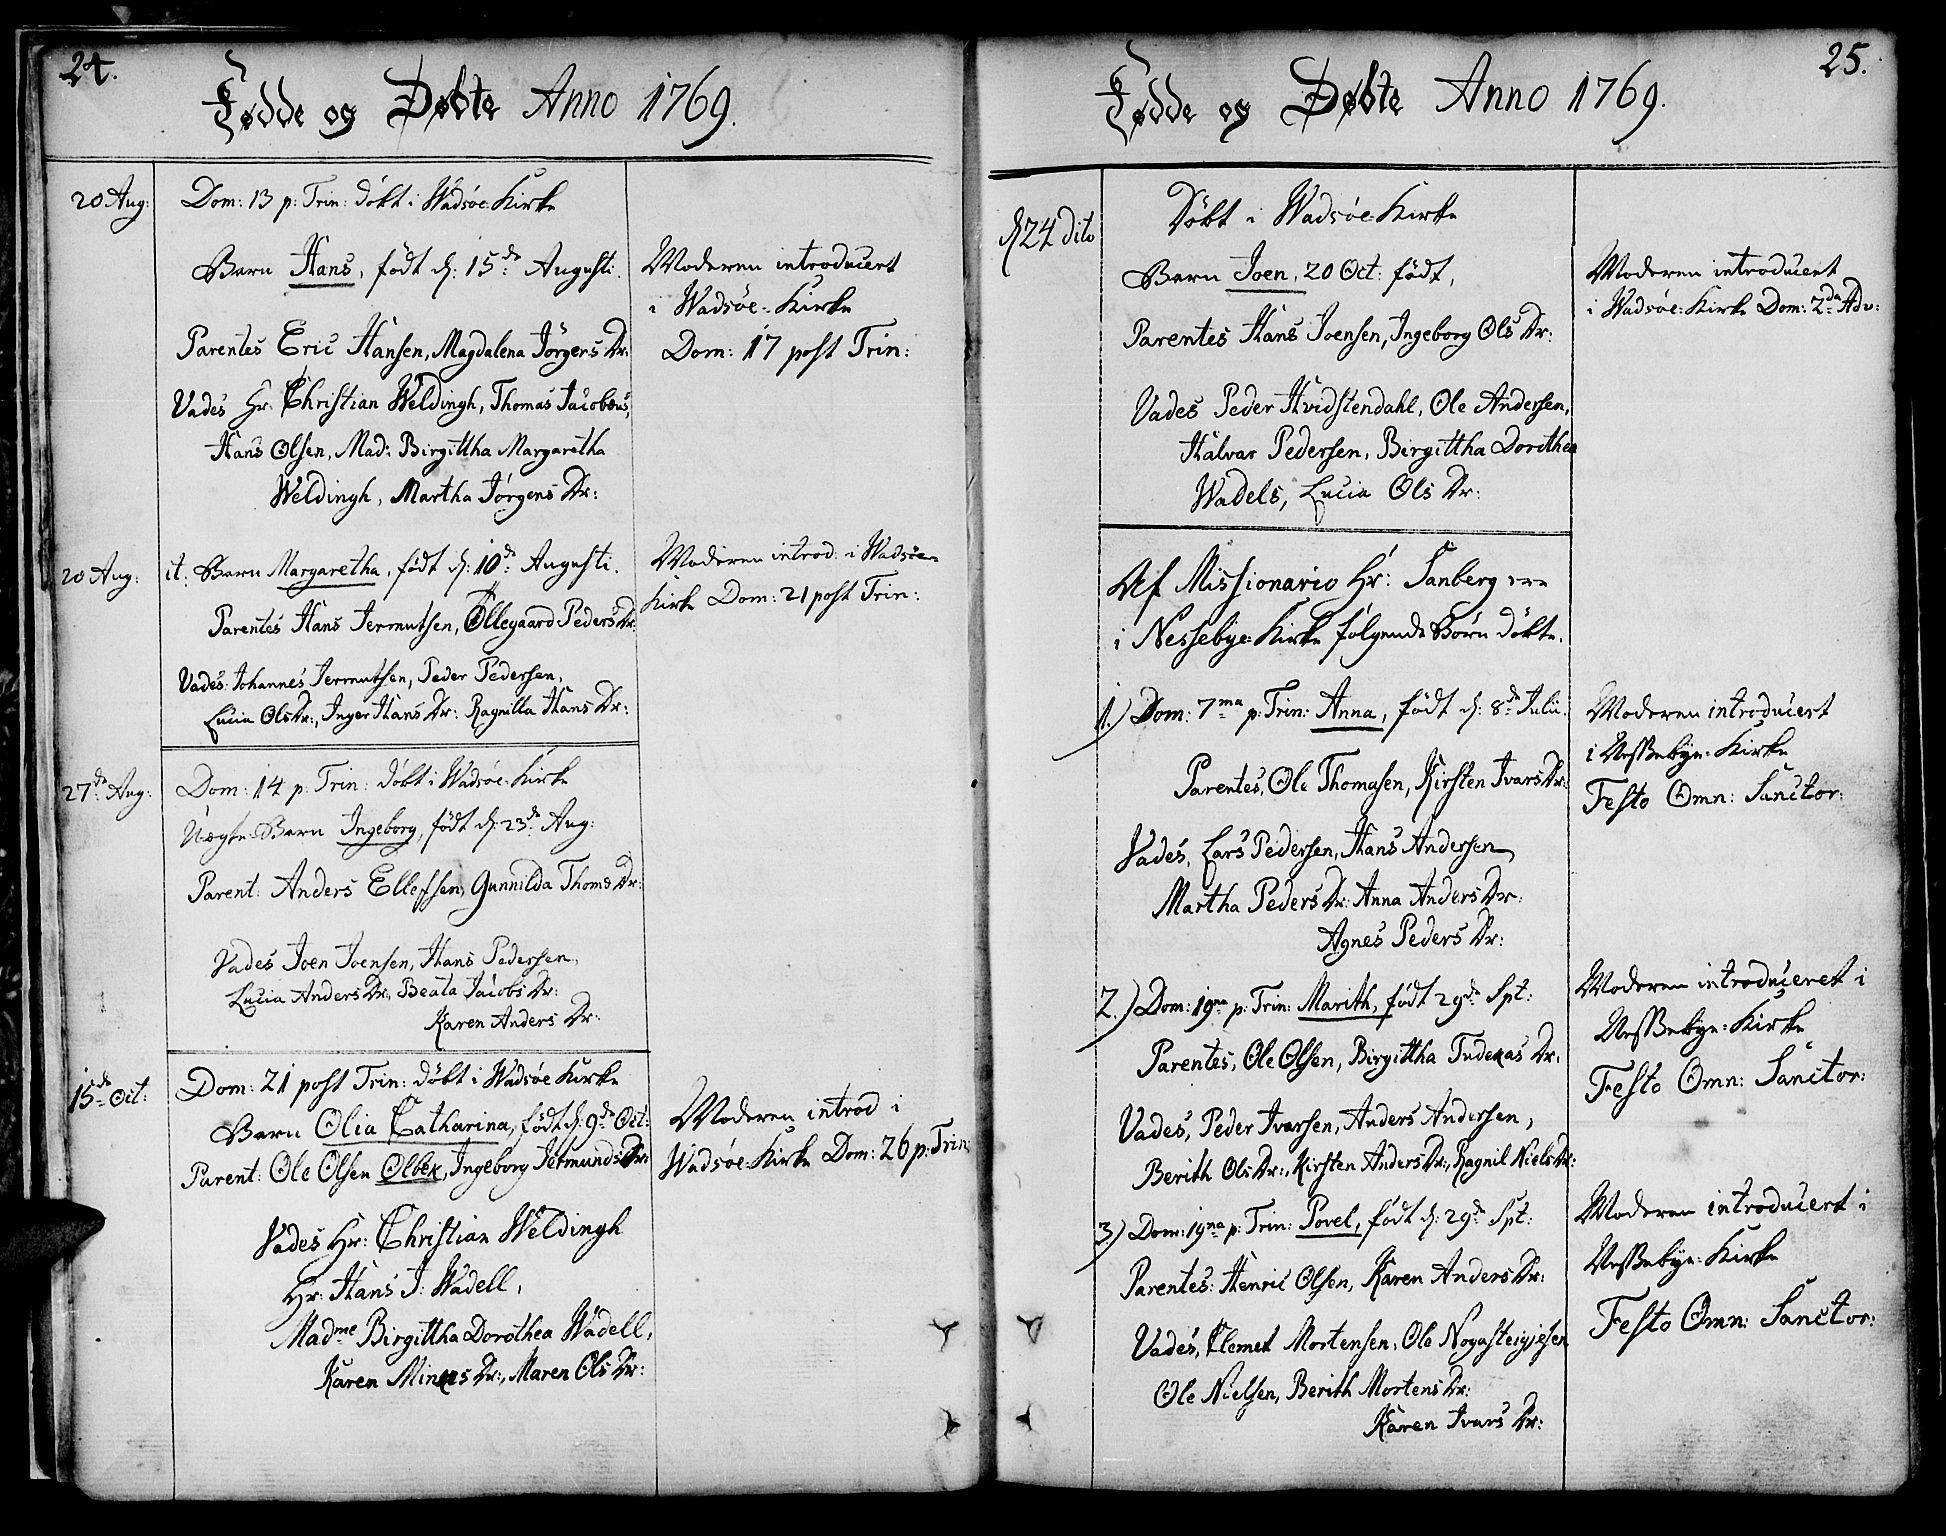 24.
Fødde og Døbte Anno 1769.
20 Aug: Dom: 13 p: Trin: döbt i Wadsöe-Kirke
Barn Hans, födt d: 15de Augusti.
Parentes Eric Hansen, Magdalena Jörgens Dr:
Vades Hr: Christian Weldingh, Thomas Jacobæus,
Hans Olsen, Mad: Birgittha Margaretha
Weldingh, Martha Jörgens Dr:
Moderen introducert
i Wadsöe-Kirke
Dom: 17 post Trin:
20 Aug: it: Barn Margaretha, födt d: 10de Augusti.
Parentes Hans Jermutsen, Ollegaard Peders Dr:
Vades: Johannes Jermutsen, Peder Pedersen,
Lucia Ols Dr:, Inger Hans Dr: Ragnilla Hans Dr:
Moderen introd: i Wadsöe-
Kirke Dom: 21 post Trin:
27de Aug: Dom: 14 p: Trin: döbt i Wadsöe-Kirke
Uægte-Barn Ingeborg, födt d: 23de Aug:
Parent: Anders Ellefsen, Gunnilda Thoms Dr:
Vades Joen Joensen, Hans Pedersen,
Lucia Anders Dr:, Beata Jacobs Dr:
Karen Anders Dr:
15de Oct: Dom: 21 post Trin: döbt i Wadsöe Kirke
Barn Olia Catharina, födt d: 9de Oct:
Parent: Ole Olsen Olbek, Ingeborg Jermunds Dr:
Vades Hr: Christian Weldingh
Hr: Hans J: Wadell,
Madme Birgittha Dorothea Wadell,
Karen Dr:, Maren Ols Dr:
Moderen introd i
Wadsöe-Kirke Dom: 26 p: Trin:
25.
Fødde og Døbte Anno 1769.
d 24 dito Döbt i Wadsöe-Kirke
Barn Joen, 20 Oct: födt,
Parentes Hans Joensen, Ingeborg Ols Dr:
Vades Peder Hvidstendahl, Ole Andersen,
Halvar Pedersen, Birgittha Dorothea
Wadels, Lucia Ols Dr:
Moderen introducert
i Wadsöe-Kirke Dom: 2da Adv:
Af Missionario Hr: Sanberg ere
i Nessebye-Kirke fölgende Börn döbte.
1.) Dom: 7ma p: Trin: Anna, födt d: 8de Julii.
Parentes, Ole Thomasen, Kirsten Ivars Dr:
Vades, Lars Pedersen, Hans Andersen
Martha Peders Dr: Anna Anders Dr:
Agnes Peders Dr:
Moderen introducert
i Nessebye-Kirke
Festo Omn: Sanctor:
2.) Dom: 19na p: Trin: Marith, födt 29de Spt:
Parentes, Ole Olsen, Birgittha Dr:
Vades, Peder Ivarsen, Anders Andersen,
Berith Ols Dr:, Kirsten Anders Dr:, Ragnil Niels Dr:
Moderen introduceret i
Nessebye-Kirke
Festo Omn: Sanctor:
3) Dom: 19na p: Trin: Povel, födt d: 29de Spt:
Parentes: Henric Olsen, Karen Anders Dr:
Vades, Clemet Mortensen, Ole
Ole Nielsen, Berith Mortens Dr:
Karen Ivars Dr:
Moderen introducert i
Nessebye-Kirke
Festo Omn: Sanctor: